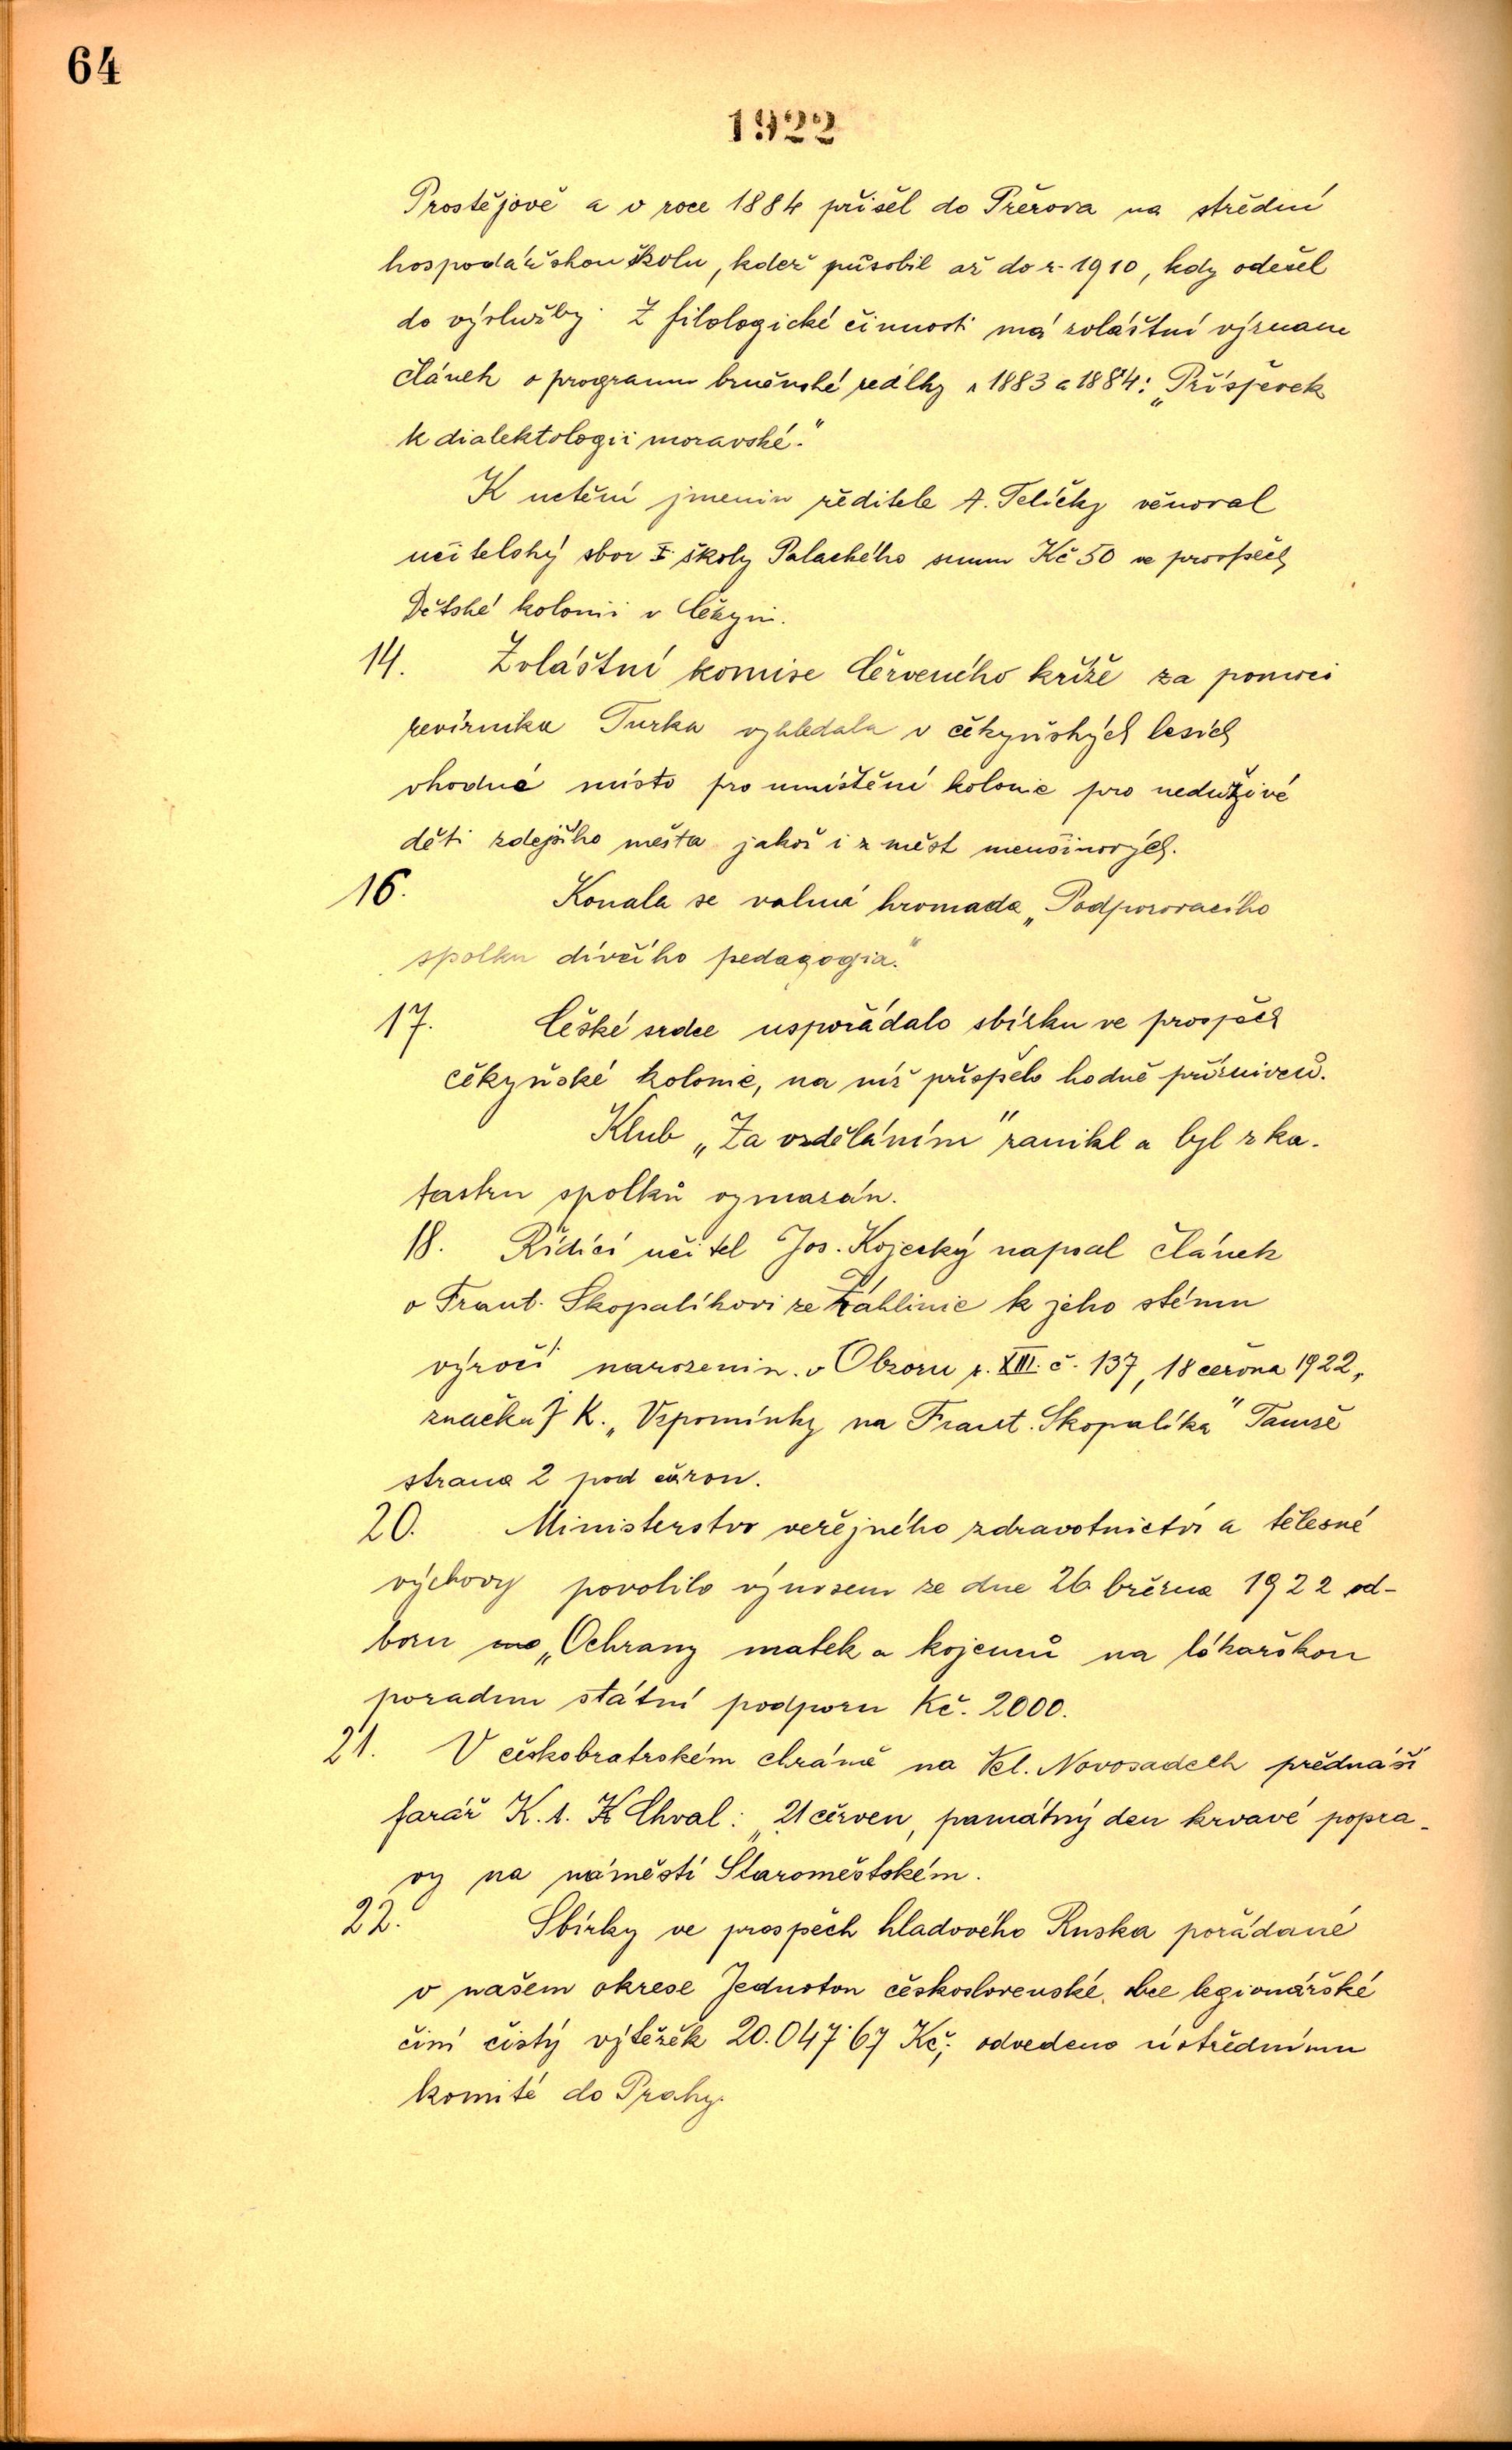 64
1922
Prostějově a v roce 1884 přišel do Přerova na střední
hospodářskou školu, kdež působil až do r. 1910, kdy odešel
do výslužby. Z filologické činnosti má zvláštní význam
článek v programu brněnské reálky r 1883 a 1884: „Příspěvek
k dialektologii moravské."
K uctění jmenin ředitele A. Teličky věnoval
učitelský sbor I školy Palackého sumu Kč 50 ve prospěch
Dětské kolonii v Čekyni.
14. Zvláštní komise Červeného kříže za pomoci
revírníka Turka vyhledala v čekyňských lesích
vhodné místo pro umístění kolonie pro neduživé
děti zdejšího města jakož i z měst menšinových.
16. Konala se valná hromada „Podporovacího
spolku dívčího pedagogia."
17. České srdce uspořádalo sbírku ve prospěch
čekyňské kolonie, na niž přispělo hodně příznivců.
Klub „Za vzděláním" zanikl a byl z ka-
tastru spolků vymazán.
18. Řídící učitel Jos. Kojecký napsal článek
o Frant. Skopalíkovi ze Záhlinic k jeho stému
výročí narozenin. v Obzoru r. XIII. č. 137, 18 června 1922,
značku J K. „Vzpomínky na Frant. Skopalíka" Tamže
strana 2 pod čarou.
20. Ministerstvo veřejného zdravotnictví a tělesné
výchovy povolilo výnosem ze dne 26. března 1922 od-
boru „Ochrany matek a kojenců na lékařskou
poradnu státní podporu Kč. 2000.
21. V českobratrském chrámě na Vel. Novosadech přednáší
farář K. A. Chval: „21 červen, památný den krvavé popra-
vy na náměstí Staroměstském.
22. Sbírky ve prospěch hladového Ruska pořádané
v našem okrese Jednotou československé obce legionářské
činí čistý výtěžek 20.047·67 Kč; odvedeno ústřednímu
komité do Prahy.